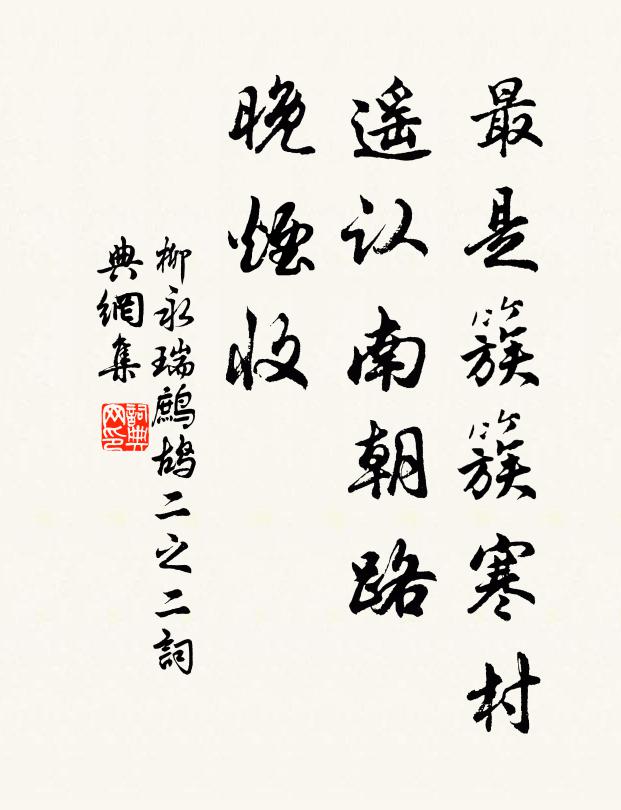 最是簇簇寒村
遥认南朝路
晚烟收
柳永瑞鹧鸪二之二詞
典網集
詞典网印